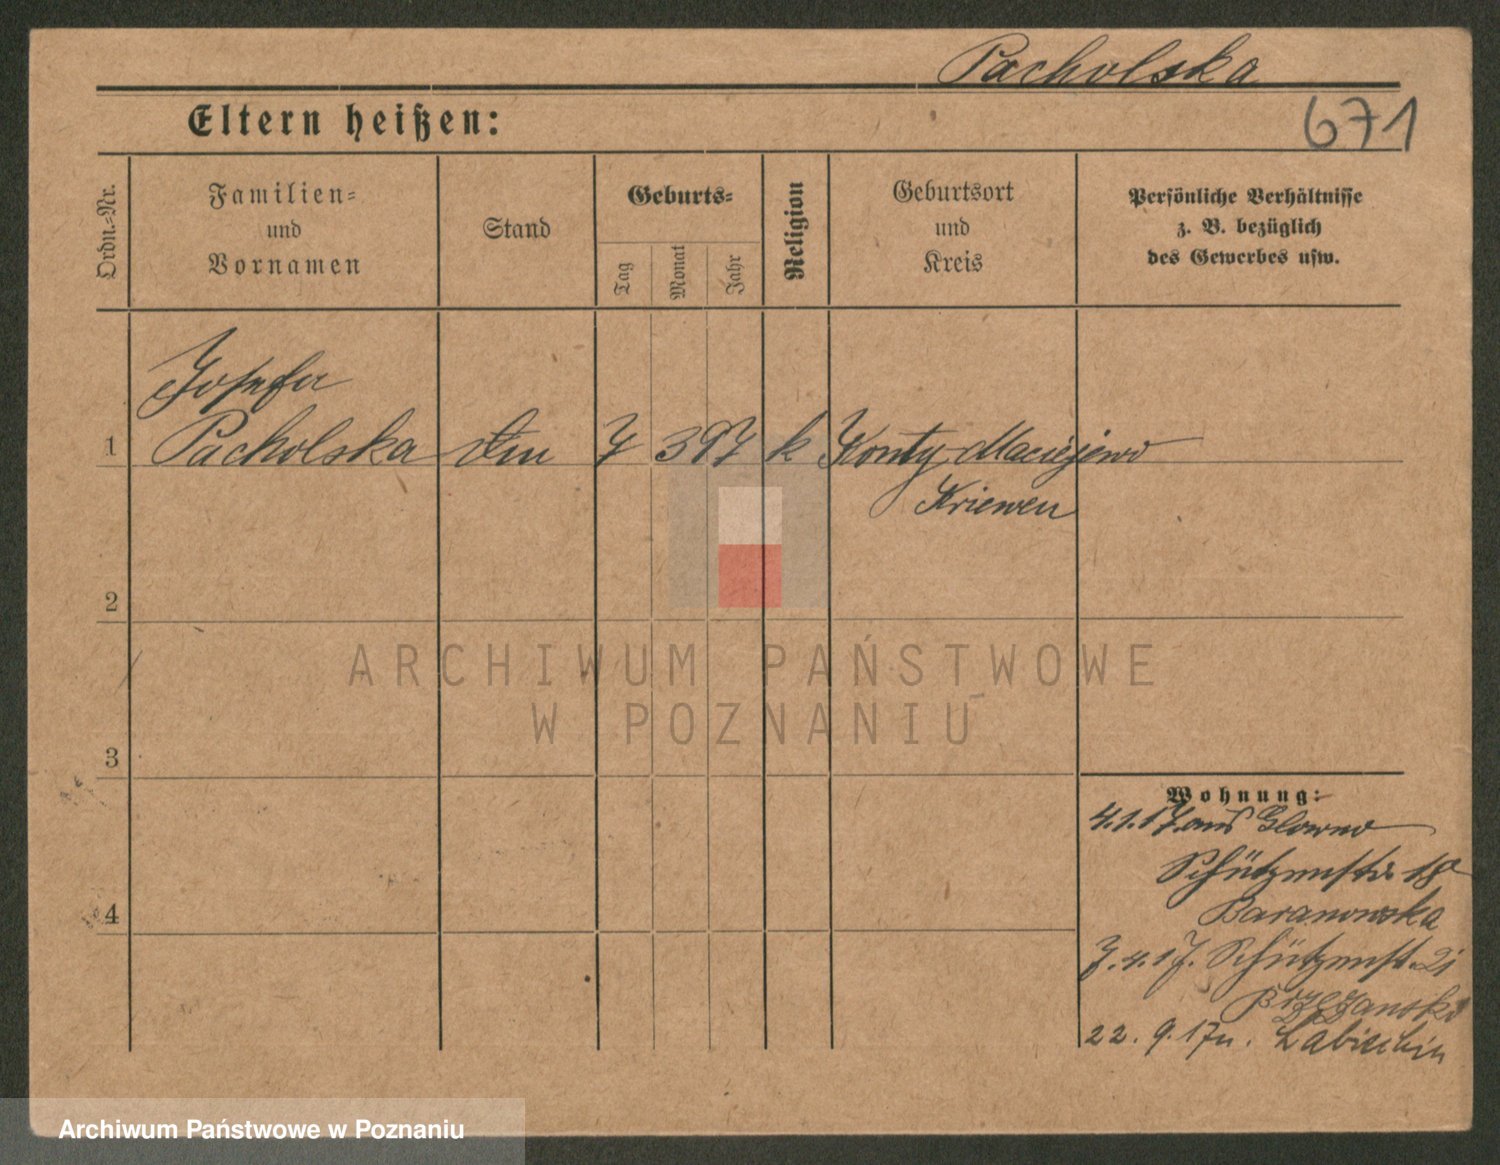 Pacholska
671
Eltern heißen:
Ordn.=Nr.
Familien=
und
Vornamen
Stand
Geburts=
Tag
Monat
Jahr
Religion
Geburtsort
und
Kreis
Persönliche Verhältnisse
z. B. bezüglich
des Gewerbes usw.
Josefa
1 Pacholska 7 3 97 k Konty Maciejewo
Kriewen
2
3
4
Wohnung:
4.1.17 aus Glowno
Schützenstr 18
Baranowska
7.4.17. Schützenst. 21
Brzezanski
22. 9. 17 n. Labischin
ARCHIWUM PAŃSTWOWE
W POZNANIU
Archiwum Państwowe w Poznaniu